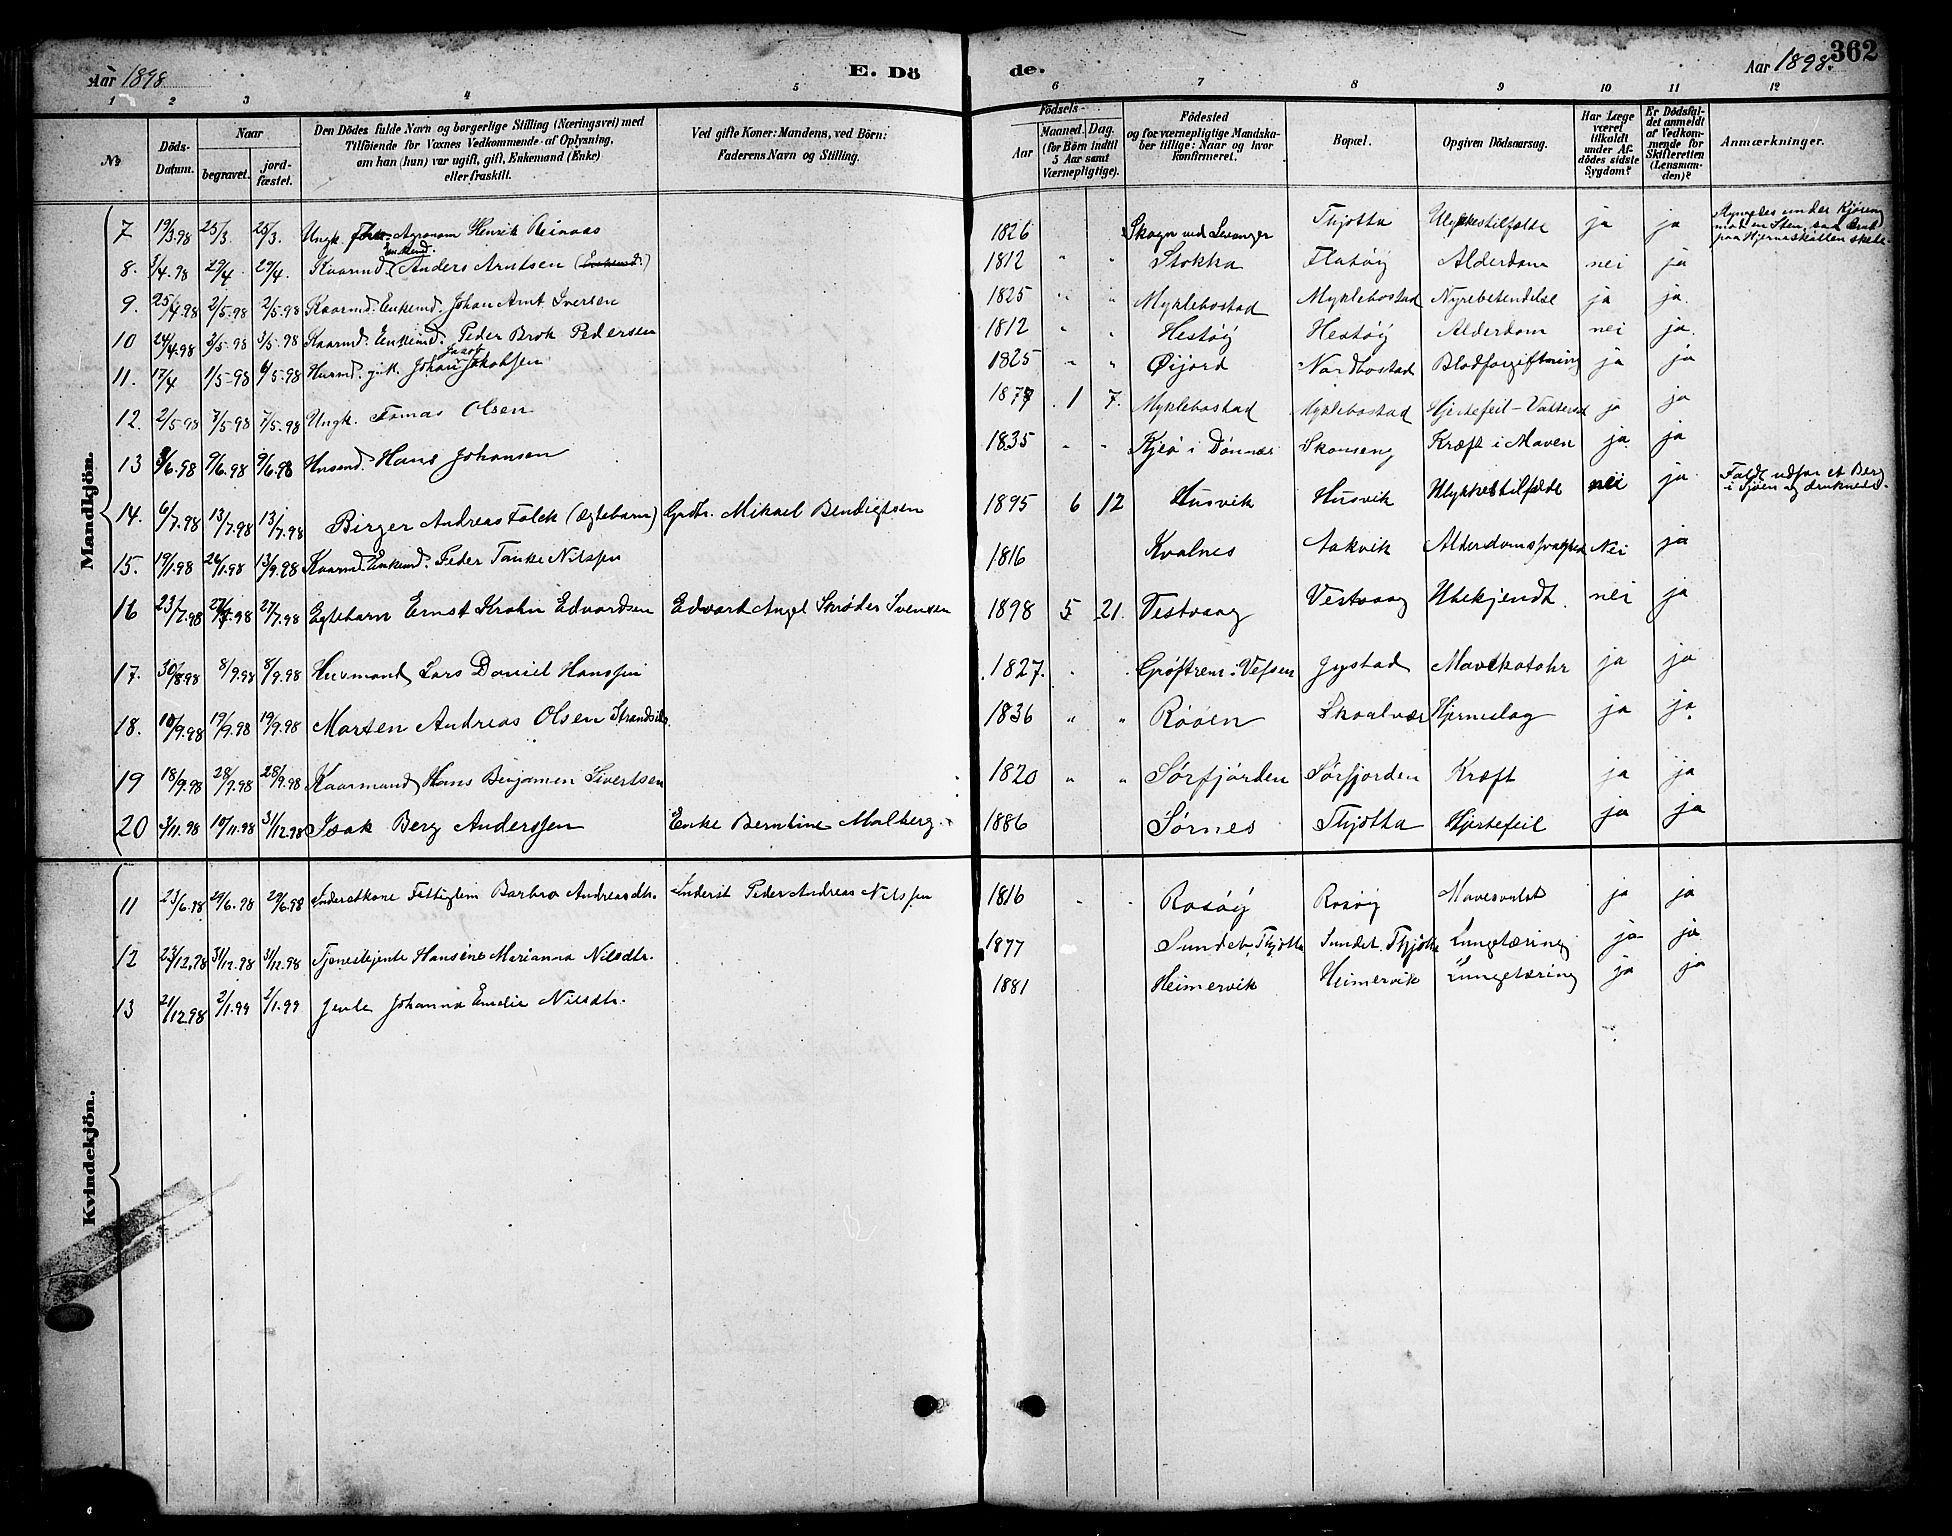 Aar 1898
E. Dö
de.
Aar 1898.
362
1 2 3 4 5 6 7 8 9 10 11 12
No
Döds-
Datum.
Naar
begravet.
jord-
fæstet.
Den Dödes fulde Navn og borgerlige Stilling (Næringsvei) med
Tilföiende for Voxnes Vedkommende af Oplysning,
om han (hun) var ugift, gift, Enkemand (Enke)
eller fraskilt.
Ved gifte Koner: Mandens, ved Börn:
Faderens Navn og Stilling.
Födsels-
Aar
Maaned. Dag.
(for Börn indtil
5 Aar samt
Værnepligtige).
Födested
og for værnepligtige Mandska-
ber tillige: Naar og hvor
konfirmeret.
Bopæl.
Opgiven Dödsaarsag.
Har Læge
været
tilkaldt
under Af-
dödes sidste
Sygdom?
Er Dödsfal-
det anmeldt
af Vedkom-
mende for
Skifteretten
(Lensman-
den)?
Anmærkninger.
Mandkjön.
7 19/3.98 25/3. 25/3. Ungk. Agronom Henrik 1826 Skogn ved Levanger Thjøtta Ulykkestilfælde ja ja under Kjøring mod en Sten, saa Brud paa Hjerneskallen skede.
8. /4.98 29/4 29/4. Kaarmd. Enkemd. Anders Arntsen (Enkemd.) 1812 " " Stokka Flatøy Alderdom nei ja
9. 25/4.98 2/5.98 2/5.98 Kaarmd. Enkemd. Johan Arnt Iversen 1825 " " Myklebostad Myklebostad Nyrebetendelse ja ja.
10 24/4.98 3/5.98 3/5.98 Kaarmd. Enkemd. Peder Brok Pedersen 1812 " " Hestøy Hestøy Alderdom nei ja
11. 17/4 1/5.98 6/5.98 Husmd. gift. Johan Jacob Jakobsen 1825 " " Øijord Nordbostad Blodforgiftning ja ja
12. 2/5.98 7/5.98 7/5.98 Ungk. Tomas Olsen 1877 1 7. Myklebostad Myklebostad Hjertefeil - Vattersot ja ja
13 /6.98 9/6.98 9/6.98 Husmd. Hans Johansen 1835 " " i Dønnæs Skonseng Kræft i Maven ja ja
14. 6/7.98 13/7.98 13/7.98 Birger Andreas Falck (Ægtebarn) Grdbr. Mikael Bendigtsen 1895 6 12 Husvik Husvik Ulykkestilfælde nei ja Faldt udfor et Berg i Sjøen og druknede.
15. 19/1.98 26/1.98 13/9.98 Kaarmd. Enkemd. Peder Tanke Nilssen 1816 Kvalnes Aakvik Nei ja
16 23/7.98 27/7.98 27/7.98 Egtebarn Ernst Krohn Edvardsen Edvart Angel Skrøder Svensen 1898 5 21. Vestvaag Vestvaag Ubekjendt. nei ja
17. 30/8.98 8/9.98 8/9.98 Husmand Lars Daniel Hanssen 1827. " Grøftrem i Vefsen Gystad Mavekatahr ja ja
18. 10/9.98 19/9.98 19/9.98 Morten Andreas Olsen 1836 " " Røøen Skaalvær Hjerneslag ja ja
19 18/9.98 28/9.98 28/9.98 Kaarmand Hans Benjamen Sivertsen 1820 " " Sørfjorden Sørfjorden Kræft ja ja
20 3/11.98 10/11.98 31/12.98 Isak Berg Anderssen Enke Berntine Malberg. 1886 Sørnes Thjøtta Hjertefeil ja ja
Kvindekjön.
11 23/6.98 29/6.98 29/6.98 Inderstkone Fattiglem Barbro Andreasdtr. Inderst Peder Andreas Nilssen 1816 " " Rosøy Rosøy Mavesvulst ja ja
12 23/12.98 31/12.98 31/12.98 Tjenestejente Hansine Marianna Nilsdtr. 1877 Sundet, Thjøtta Sundet. Thjøtta Lungetæring ja ja
13 21/12.98 2/1.99 2/1.99 Jente Johanna Emelie Nilsdtr. 1881 Heimervik Heimervik Lungetæring ja ja